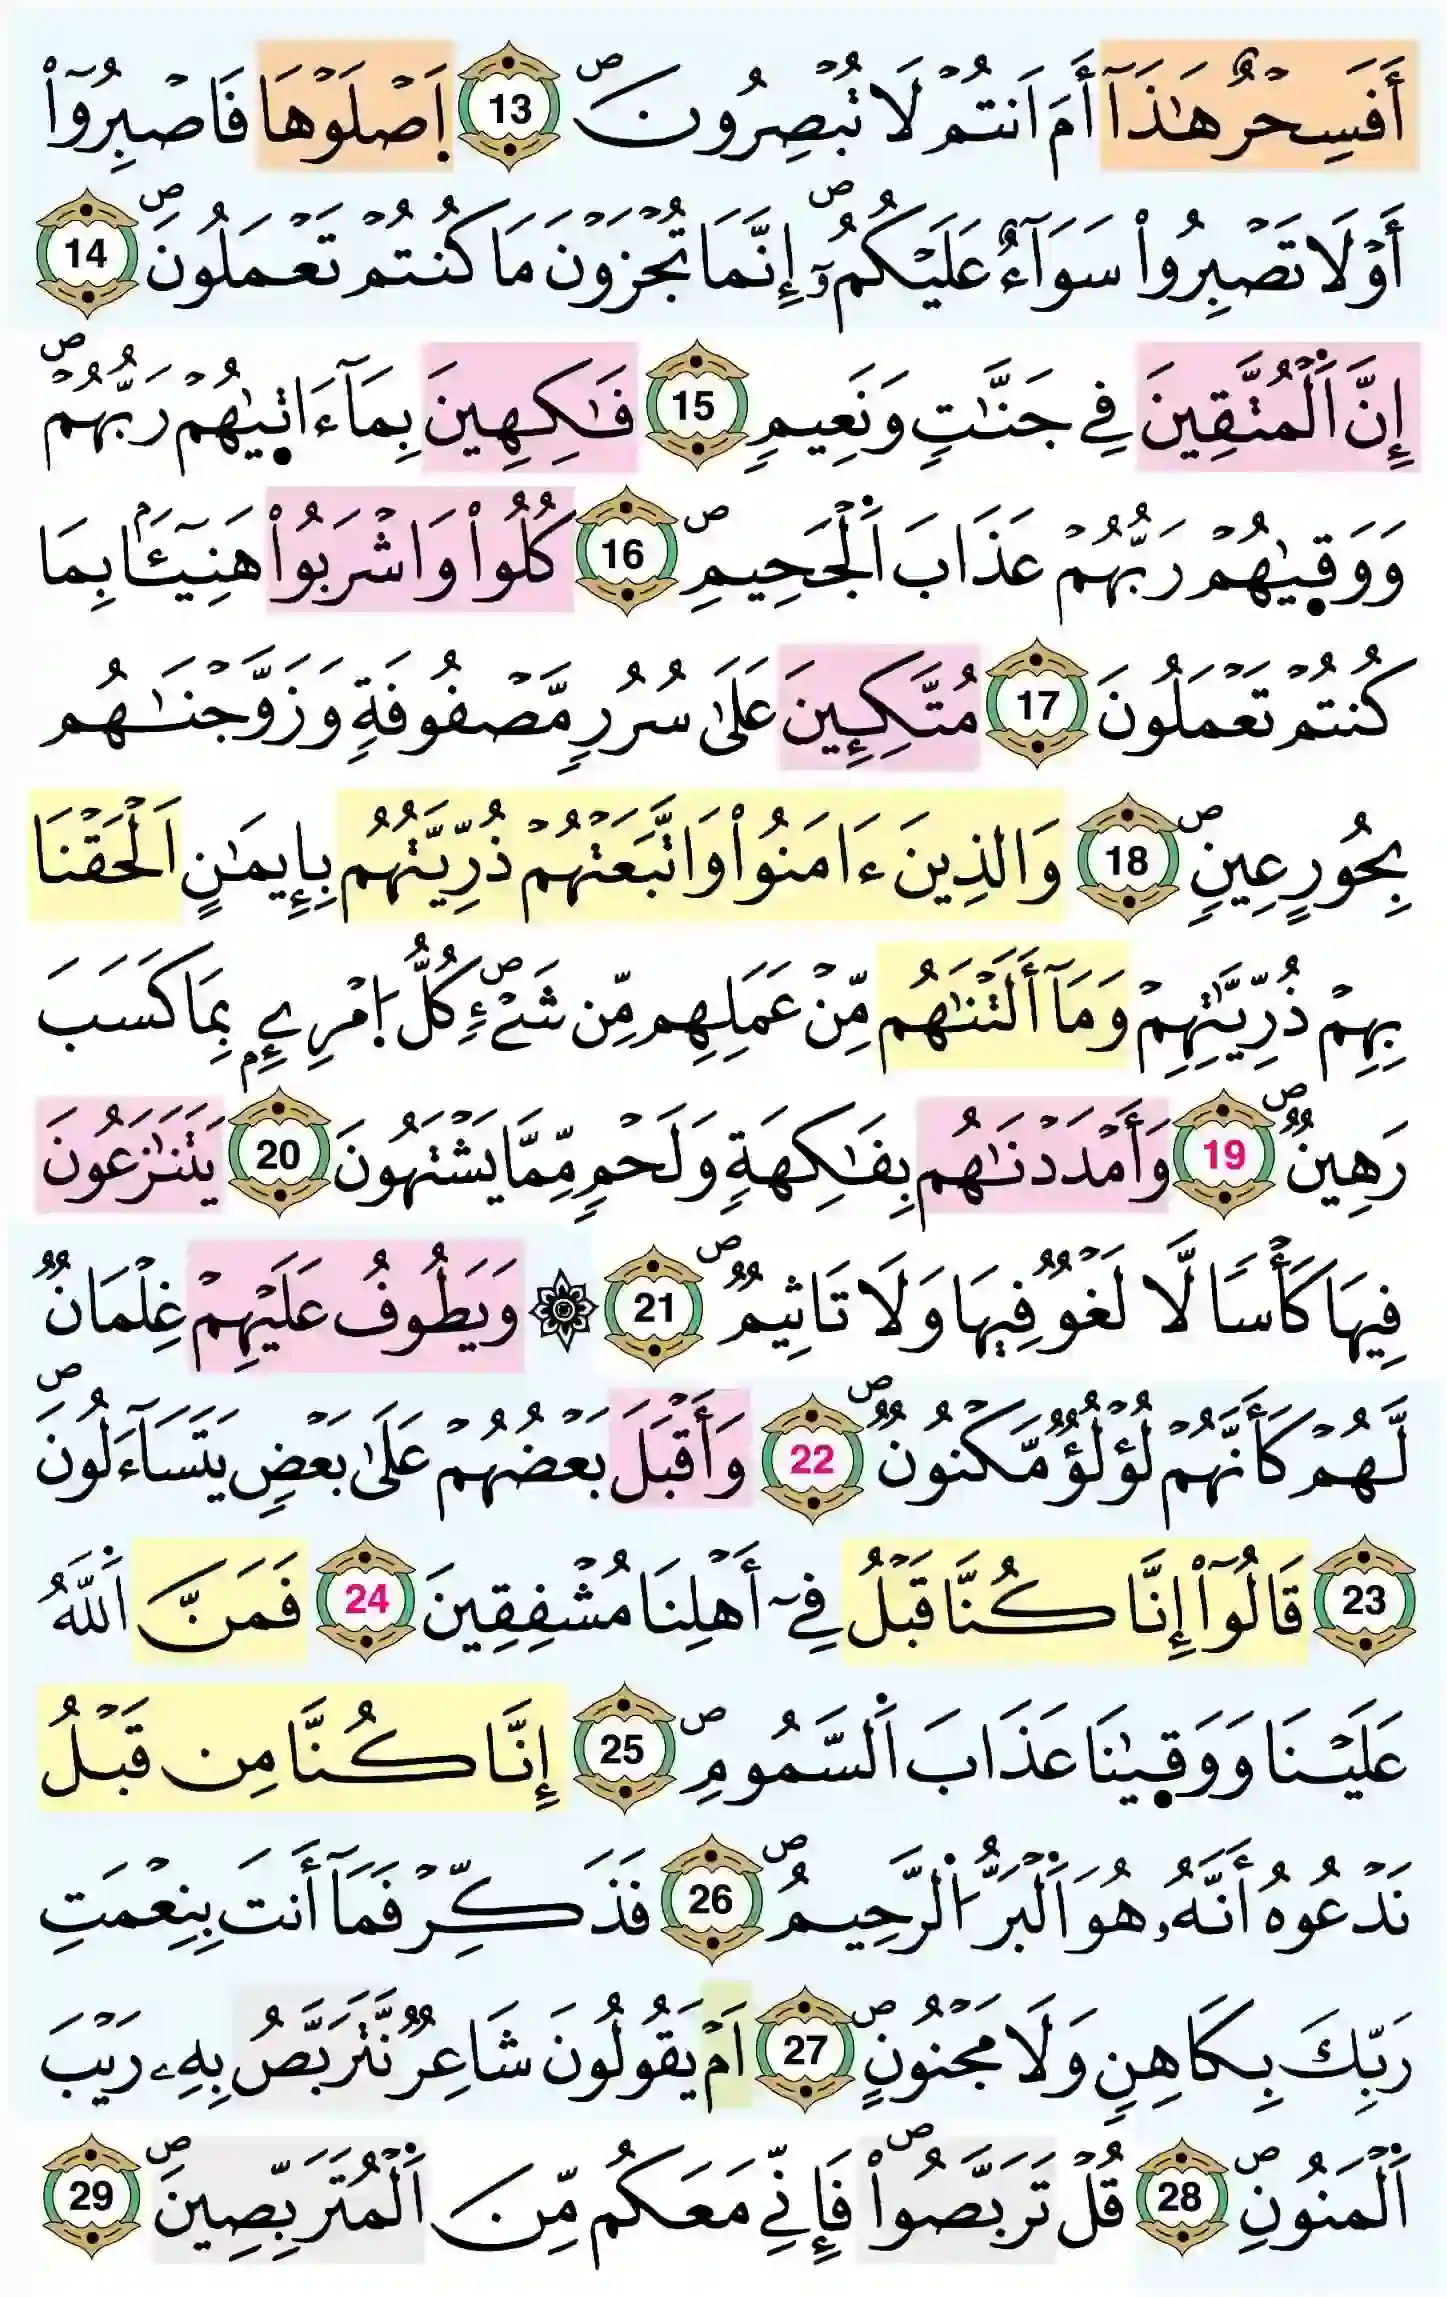 أَفَسِحْرٌ هَٰذَآ أَمَ اَنتُمْ لَا تُبْصِرُونَۖ 13 اَ۪صْلَوْهَا فَاصْبِرُوٓاْ
أَوْ لَا تَصْبِرُواْ سَوَآءٌ عَلَيْكُمُۥٓۖ إِنَّمَا تُجْزَوْنَ مَا كُنتُمْ تَعْمَلُونَۖ 14
إِنَّ اَ۬لْمُتَّقِينَ فِے جَنَّٰتٖ وَنَعِيمٖ 15 فَٰكِهِينَ بِمَآ ءَات۪يٰهُمْ رَبُّهُمْۖ
وَوَق۪يٰهُمْ رَبُّهُمْ عَذَابَ اَ۬لْجَحِيمِۖ 16 كُلُواْ وَاشْرَبُواْ هَنِيٓـَٔاۢ بِمَا
كُنتُمْ تَعْمَلُونَ 17 مُتَّكِـِٕينَ عَلَىٰ سُرُرٖ مَّصْفُوفَةٖ وَزَوَّجْنَٰهُم
بِحُورٍ عِينٖۖ 18 وَالذِينَ ءَامَنُواْ وَاتَّبَعَتْهُمْ ذُرِّيَّتُهُم بِإِيمَٰنٍ اَلْحَقْنَا
بِهِمْ ذُرِّيَّٰتِهِمْ وَمَآ أَلَتْنَٰهُم مِّنْ عَمَلِهِم مِّن شَےْءٖۖ كُلُّ اُ۪مْرِےِٕۢ بِمَا كَسَبَ
رَهِينٞۖ 19 وَأَمْدَدْنَٰهُم بِفَٰكِهَةٖ وَلَحْمٖ مِّمَّا يَشْتَهُونَ 20 يَتَنَٰزَعُونَ
فِيهَا كَأْسٗا لَّا لَغْوٞ فِيهَا وَلَا تَاثِيمٞۖ 21 ۞ وَيَطُوفُ عَلَيْهِمْ غِلْمَانٞ
لَّهُمْ كَأَنَّهُمْ لُؤْلُؤٞ مَّكْنُونٞۖ 22 وَأَقْبَلَ بَعْضُهُمْ عَلَىٰ بَعْضٖ يَتَسَآءَلُونَۖ
23 قَالُوٓاْ إِنَّا كُنَّا قَبْلُ فِےٓ أَهْلِنَا مُشْفِقِينَ 24 فَمَنَّ اَ۬للَّهُ
عَلَيْنَا وَوَق۪يٰنَا عَذَابَ اَ۬لسَّمُومِۖ 25 إِنَّا كُنَّا مِن قَبْلُ
نَدْعُوهُ أَنَّهُۥ هُوَ اَ۬لْبَرُّ اُ۬لرَّحِيمُۖ 26 فَذَكِّرْ فَمَآ أَنتَ بِنِعْمَتِ
رَبِّكَ بِكَاهِنٖ وَلَا مَجْنُونٍۖ 27 اَمْ يَقُولُونَ شَاعِرٞ نَّتَرَبَّصُ بِهِۦ رَيْبَ
اَ۬لْمَنُونِۖ 28 قُلْ تَرَبَّصُواْۖ فَإِنِّے مَعَكُم مِّنَ اَ۬لْمُتَرَبِّصِينَۖ 29